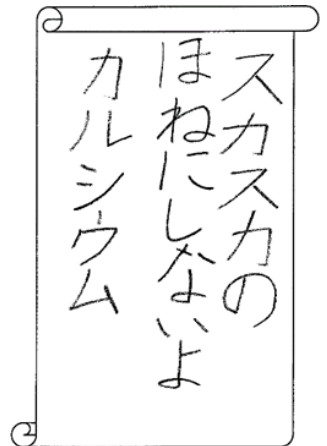 スカスカの
ほねにしないよ
カルシウム